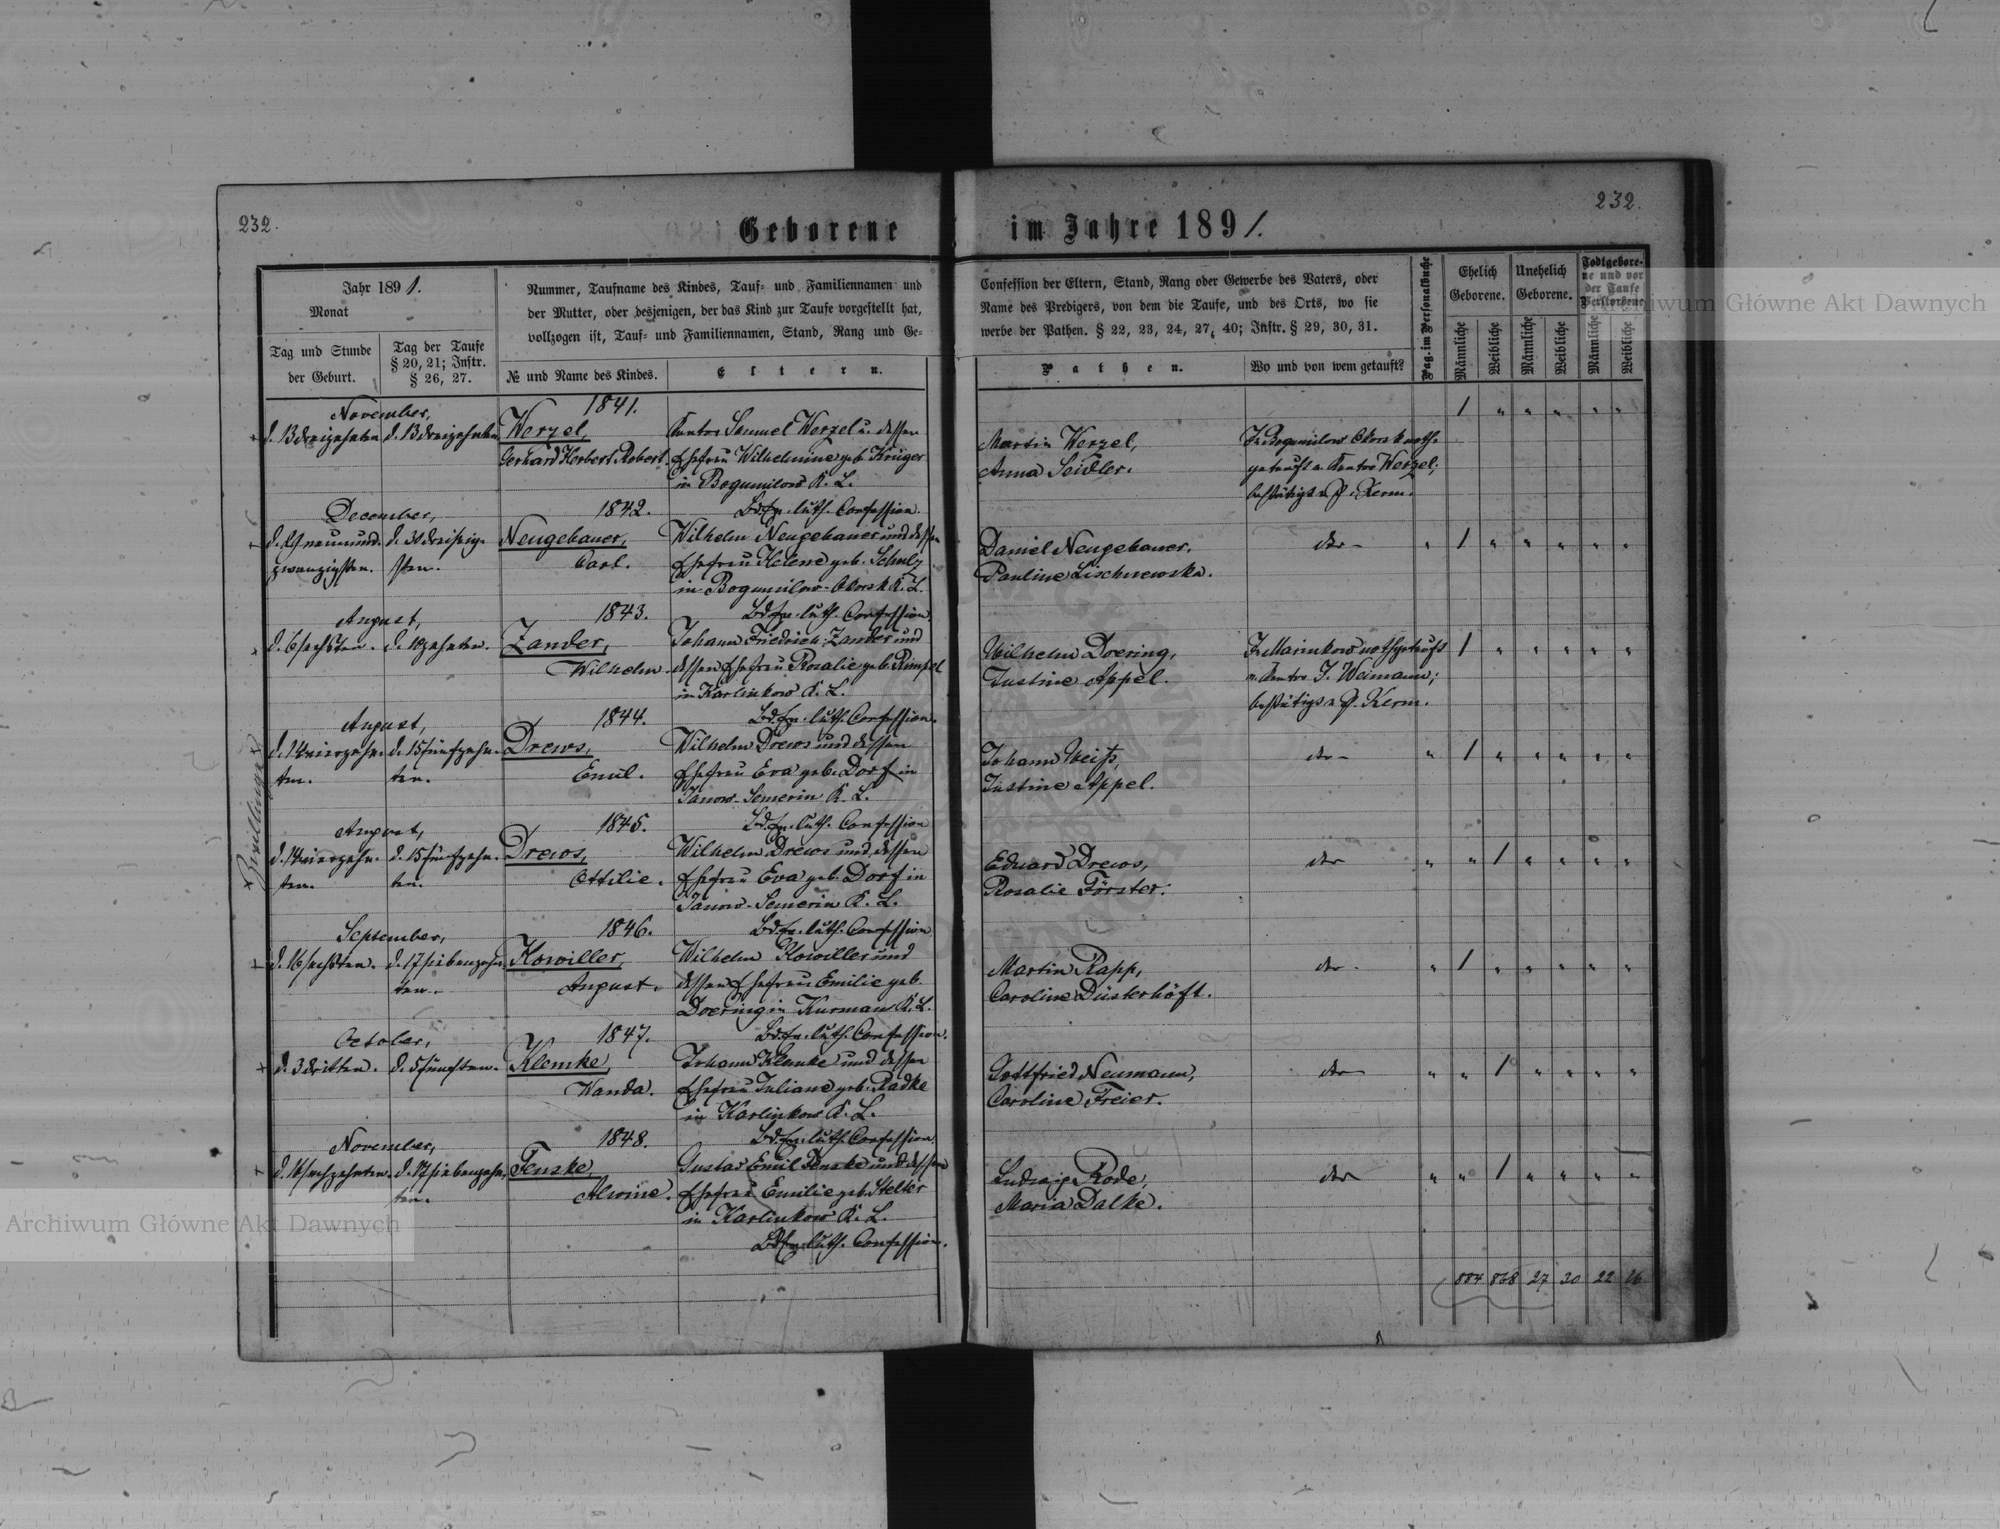 232.
232.
Geborene im Jahre 1891.
Jahr 1891.
Monat
Tag und Stunde
der Geburt.
Tag der Taufe
§ 20, 21; Instr.
§ 26, 27.
Nummer, Taufname des Kindes, Tauf- und Familiennamen und
der Mutter, oder desjenigen, der das Kind zur Taufe vorgestellt hat,
vollzogen ist, Tauf- und Familiennamen, Stand, Rang und Ge-
№ und Name des Kindes.
Eltern.
Confession der Eltern, Stand, Rang oder Gewerbe des Vaters, oder
Name des Predigers, von dem die Taufe, und des Orts, wo sie
werbe der Pathen. § 22, 23, 24, 27, 40; Instr. § 29, 30, 31.
Pathen.
Wo und von wem getauft?
Pag. im Personalbuche
Ehelich
Geborene.
Unehelich
Geborene.
Todtgebore-
ne und vor
der Taufe
Verstorbene
Männliche
Weibliche
Männliche
Weibliche
Männliche
Weibliche
November,
1841.
d. 13 dreizehnten
d. 13 dreizehnten
Werzel,
Gerhard Herbert Robert.
Kantor Samuel Werzel u. dessen
Ehefrau Wilhelmine geb. Krüger
in Bogumilow K. L.
Bd. ev. luth. Confession.
Martin Werzel,
Anna Seidler.
In Bogumilow noth-
getauft v. Kantor Werzel;
bestätigt v. P.
December,
1842.
d. 29 neunund-
zwanzigsten.
d. 30 dreißig-
sten.
Neugebauer,
Carl.
Wilhelm Neugebauer und dessen
Ehefrau Helene geb. Schulz
in Bogumilow K. L.
Bd. ev. luth. Confession.
Daniel Neugebauer,
Pauline Lischnewska.
August,
1843.
d. 6 sechsten.
d. 10 zehnten.
Zander,
Wilhelm.
Johann Friedrich Zander und
dessen Ehefrau Rosalie geb. Rimpel
in Karlinkow K. L.
Bd. ev. luth. Confession.
Wilhelm Doering,
Justine Appel.
In Marinkow nothgetauft
v. Kantor J. Weimann;
bestätigt v. P.
August,
1844.
d. 14 vierzehn-
ten.
d. 15 fünfzehn-
ten.
Drews,
Emil.
Wilhelm Drews und dessen
Ehefrau Eva geb. Dorf in
Janow-Semerin K. L.
Bd. ev. luth. Confession
Johann Weiß,
Justine Appel.
Zwillinge
August,
1845.
d. 14 vierzehn-
ten.
d. 15 fünfzehn-
ten.
Drews,
Ottilie.
Wilhelm Drews und dessen
Ehefrau Eva geb. Dorf in
Janow-Semerin K. L.
Bd. ev. luth. Confession
Eduard Drews,
Rosalie Förster.
September,
1846.
d. 16 sechsten.
d. 17 siebenzehn-
ten.
Kowiller,
August.
Wilhelm Kowiller und
dessen Ehefrau Emilie geb.
Doering in Kurman K. L.
Bd. ev. luth. Confession.
Martin Rapp,
Caroline Düsterhöft.
October,
1847.
d. 3 dritten.
d. 5 fünften.
Klemke,
Wanda.
Johann Klemke und dessen
Ehefrau Juliane geb. Radke
in Karlinkow K. L.
Bd. ev. luth. Confession.
Gottfried Neumann,
Caroline Freier.
November,
1848.
d. 16 sechzehnten.
d. 17 siebenzehn-
ten.
Fenske,
Alwine.
Gustav Emil Fenske und dessen
Ehefrau Emilie geb. Stelter
in Karlinkow K. L.
Bd. ev. luth. Confession.
Ludwig Rode,
Maria Dalke.
884 868 27 20 22 16
Archiwum Główne Akt Dawnych
Archiwum Główne Akt Dawnych